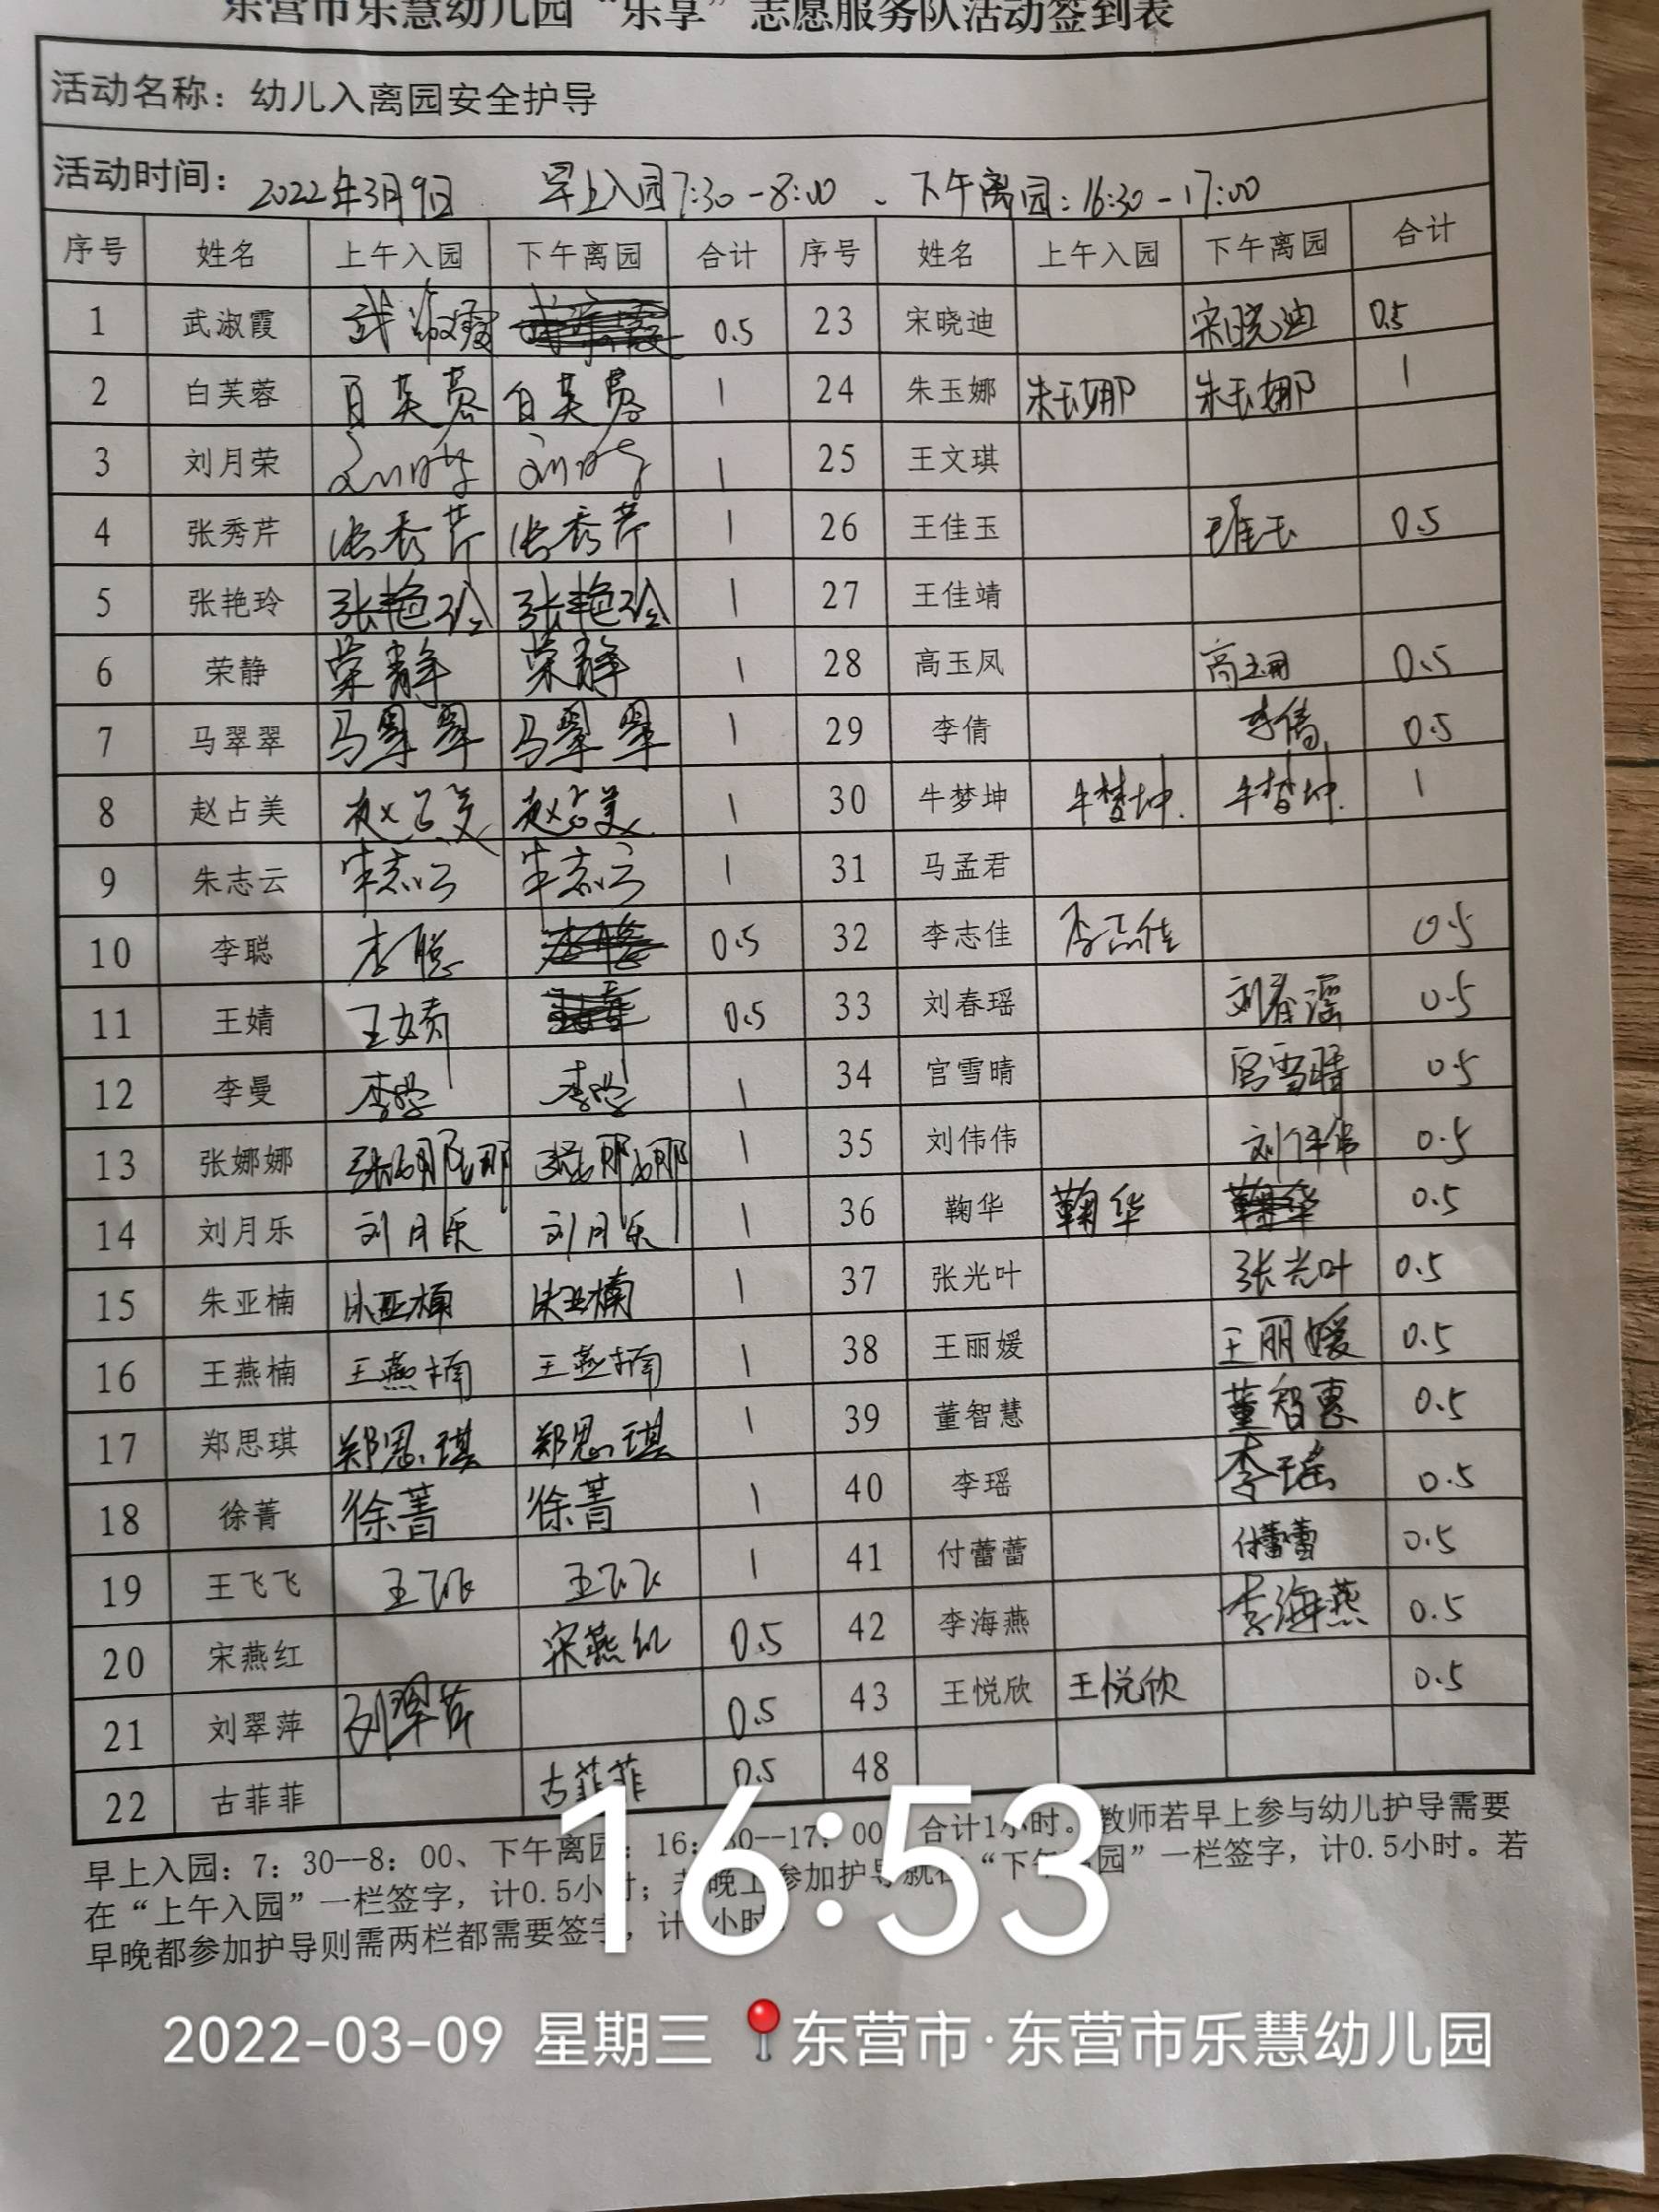 东营市乐慧幼儿园“乐享”志愿服务队活动签到表
活动名称：幼儿入离园安全护导
活动时间：2022年3月9日 早上入园7:30-8:00、下午离园：16:30-17:00
序号 姓名 上午入园 下午离园 合计 序号 姓名 上午入园 下午离园 合计
1 武淑霞 武淑霞 0.5 23 宋晓迪 宋晓迪 0.5
2 白芙蓉 白芙蓉 白芙蓉 1 24 朱玉娜 朱玉娜 朱玉娜 1
3 刘月荣 刘月荣 刘月荣 1 25 王文琪
4 张秀芹 张秀芹 张秀芹 1 26 王佳玉 王佳玉 0.5
5 张艳玲 张艳玲 张艳玲 1 27 王佳靖
6 荣静 荣静 荣静 1 28 高玉凤 高玉凤 0.5
7 马翠翠 马翠翠 马翠翠 1 29 李倩 李倩 0.5
8 赵占美 赵占美 赵占美 1 30 牛梦坤 牛梦坤. 牛梦坤. 1
9 朱志云 朱志云 朱志云 1 31 马孟君
10 李聪 李聪 0.5 32 李志佳 李志佳 0.5
11 王婧 王婧 0.5 33 刘春瑶 刘春瑶 0.5
12 李曼 李曼 李曼 1 34 宫雪晴 宫雪晴 0.5
13 张娜娜 张娜娜 张娜娜 1 35 刘伟伟 刘伟伟 0.5
14 刘月乐 刘月乐 刘月乐 1 36 鞠华 鞠华 鞠华 0.5
15 朱亚楠 朱亚楠 朱亚楠 1 37 张光叶 张光叶 0.5
16 王燕楠 王燕楠 王燕楠 1 38 王丽媛 王丽媛 0.5
17 郑思琪 郑思琪 郑思琪 1 39 董智慧 董智惠 0.5
18 徐菁 徐菁 徐菁 1 40 李瑶 李瑶 0.5
19 王飞飞 王飞飞 王飞飞 1 41 付蕾蕾 付蕾蕾 0.5
20 宋燕红 宋燕红 0.5 42 李海燕 李海燕 0.5
21 刘翠萍 刘翠萍 0.5 43 王悦欣 王悦欣 0.5
22 古菲菲 古菲菲 0.5 48
早上入园：7：30--8：00、下午离园：16：30--17：00，合计1小时。教师若早上参与幼儿护导需要
在“上午入园”一栏签字，计0.5小时；若晚上参加护导就在“下午离园”一栏签字，计0.5小时。若
早晚都参加护导则需两栏都需要签字，计1小时。
16:53
2022-03-09 星期三 东营市·东营市乐慧幼儿园